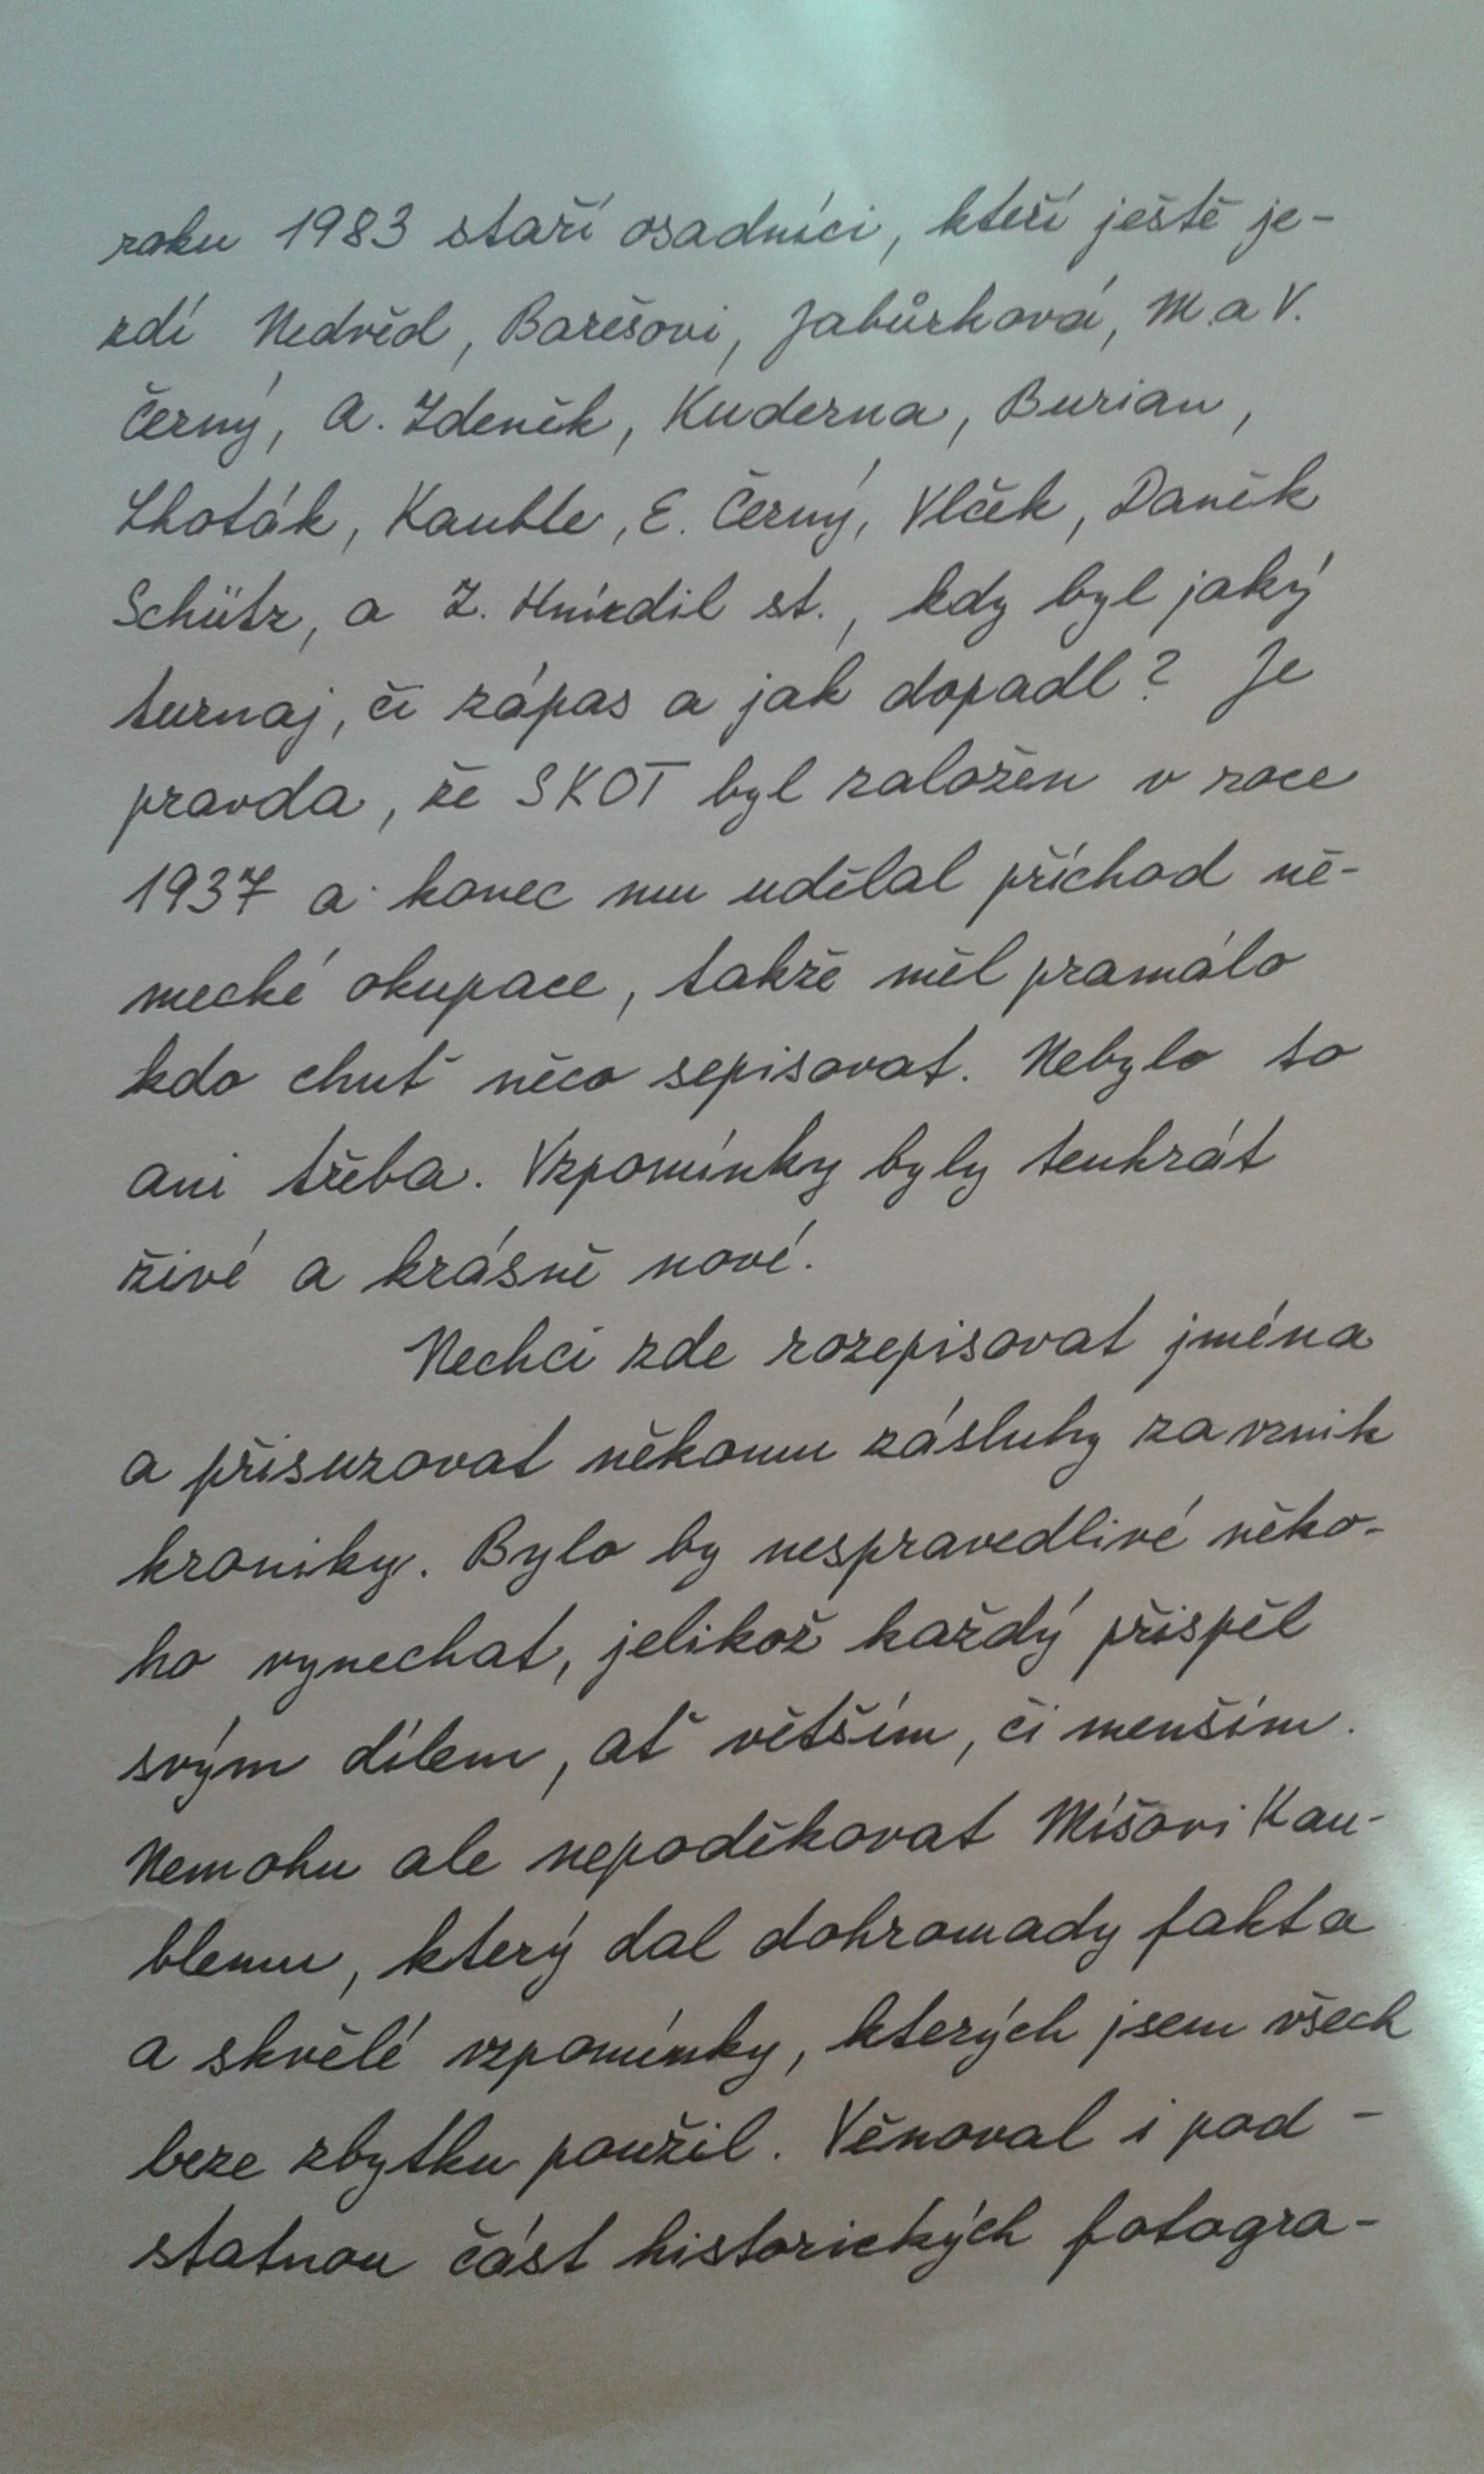 roku 1983 staří osadníci, kteří ještě je-
zdí Nedvěd, Barešovi, Jabůrková, M. a V.
Černý, A. Zdeněk, Kuderna, Burian,
Lhoták, Kauble, E. Černý, Vlček, Daněk
Schütz, a Z. Hnízdil st., kdy byl jaký
turnaj, či zápas a jak dopadl? Je
pravda, že SKOT byl založen v roce
1937 a konec mu udělal příchod ně-
mecké okupace, takže měl pramálo
kdo chuť něco sepisovat. Nebylo to
ani třeba. Vzpomínky byly tenkrát
živé a krásně nové.
Nechci zde rozepisovat jména
a přisuzovat někomu zásluhy za vznik
kroniky. Bylo by nespravedlivé něko-
ho vynechat, jelikož každý přispěl
svým dílem, ať větším, či menším.
Nemohu ale nepoděkovat Míšovi Kau-
blemu, který dal dohromady fakta
a skvělé vzpomínky, kterých jsem všech
beze zbytku použil. Věnoval i pod-
statnou část historických fotogra-